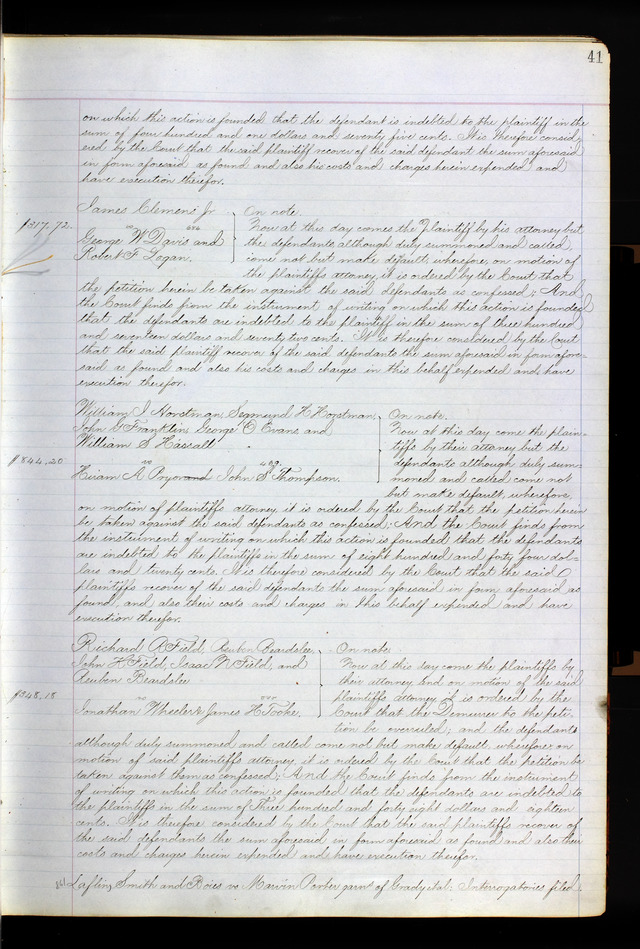 41
on which this action is founded that the defendant is indebted to the plaintiff in the
sum of four hundred and one dollars and seventy five cents. It is therefore consid-
ered by the Court that the said plaintiff recover of the said defendant the sum aforesaid
in form aforesaid as found and also his costs and charges herein expended and
have execution therefor.
James Clemens Jr On note
$317.72. Now at this day comes the Plaintiff by his attorney but
George W Davis and the defendants although duly summoned and called,
Robert F. Logan. come not but make default, wherefore, on motion of
the plaintiffs attorney, it is ordered by the Court that
the petition herein be taken against the said defendants as confessed; And
the Court finds from the instrument of writing on which this action is founded
that the defendants are indebted to the plaintiff in the sum of three hundred
and seventeen dollars and seventy two cents. It is therefore considered by the Court
that the said plaintiff recover of the said defendants the sum aforesaid in form afore-
said as found and also his costs and charges in this behalf expended and have
execution therefor.
William J Horstman, Segmund H Horstman, On note.
John G Franklin, George O Evans and Now at this day come the plain-
William S Hassall tiffs by their attorney but the
$844.20 vs defendants although duly sum-
Hiram A Pryor and John S Thompson. moned and called come not
but make default, wherefore,
on motion of plaintiffs attorney, it is ordered by the Court that the petition herein
be taken against the said defendants as confessed; And the Court finds from
the instrument of writing on which this action is founded that the defendants
are indebted to the plaintiffs in the sum of eight hundred and forty four dol-
lars and twenty cents. It is therefore considered by the Court that the said
plaintiffs recover of the said defendants the sum aforesaid in form aforesaid as
found, and also their costs and charges in this behalf expended and have
execution therefor.
Richard A Field, Reuben Beardslee, On note
John H Field, Isaac N Field, and Now at this day come the plaintiffs by
Reuben Beardslee their attorney and on motion of the said
$348.18 vs plaintiffs attorney it is ordered by the
Jonathan Wheeler & James H Tooke. Court that the Demurrer to the peti-
tion be overruled; and the defendants
although duly summoned and called come not but make default, wherefore on
motion of said plaintiffs attorney, it is ordered by the Court that the petition be
taken against them as confessed; And the Court finds from the instrument
of writing on which this action is founded that the defendants are indebted to
the plaintiffs in the sum of Three hundred and forty eight dollars and eighteen
cents. It is therefore considered by the Court that the said plaintiffs recover of
the said defendants the sum aforesaid in form aforesaid as found and also their
costs and charges herein expended and have execution therefor.
Laflin, Smith and Boies vs Marvin Porter garn't of Grady et al: Interrogatories filed.